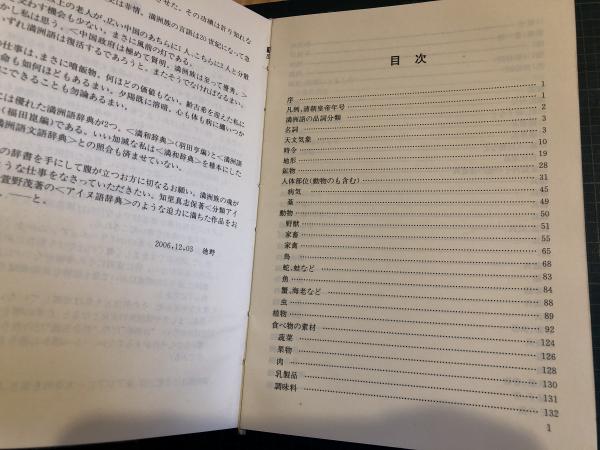 させた。その功績は計り知れな
史は非情。満洲族の言語は20世紀になってき
以上の老人が、広い中国のあちらに1人、こちらに2人と分散
交わす機会も少ない。まさに風前の灯である。
かし私は思う。<中国政府は極めて賢明。満洲族は至って優秀。>
いずれ満洲語は復活するであろうと。またそうでなければなるまい。
の仕事は、まさに噴飯物。何ほどの価値もない。齢古希を
命も如何ほどもあるまい。夕陽既に溶暗。心も体も
にできることも勿論あるまい。
には優れた満洲語辞典が2つ。<満和辞典>(羽田亨編)と<満洲語
(福田昆編)である。いい加減な私は<満和辞典>を種本にした
満洲語文語辞典>との照合も済ませていない。
の辞書を手にして腹が立つお方に切なるお願い。満洲族の魂が
ような仕事をなさっていただきたい。知里真志保著<分類アイ
萱野茂著の<アイヌ語辞典>のような迫力に満ちた作品をお
――と。
2006.12.03 徳野
目次
序 1
凡例、清朝皇帝年号 1
満洲語の品詞分類 2
名詞 3
天文気象 3
時令 10
地形 19
鉱物 28
人体部位(動物のも含む) 31
病気 45
薬 49
動物 50
野獣 51
家畜 55
家禽 65
鳥 68
蛇、蛙など 83
魚 84
蟹、海老など 88
虫 89
植物 92
食べ物の素材 124
蔬菜 124
果物 126
肉 128
乳製品 130
調味料 131
132
1